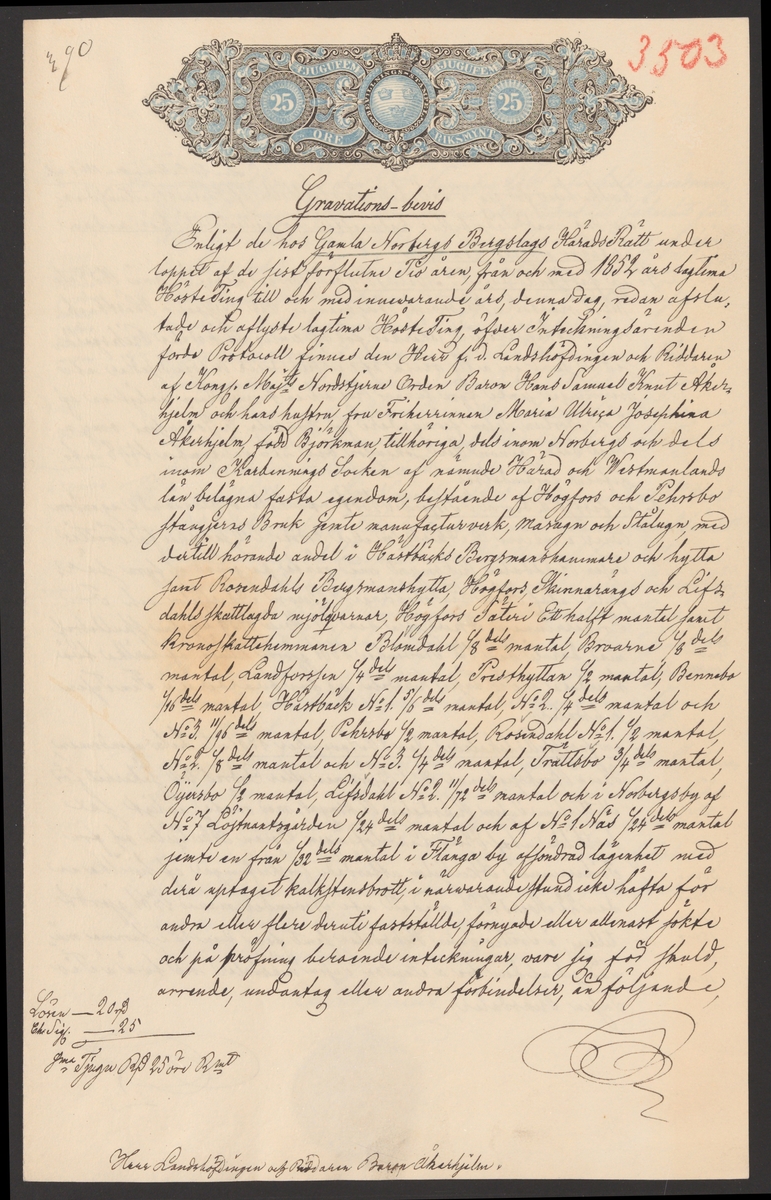 390
3503
TJUGUFEM TJUGUFEM
25 25
ÖRE RIKSMYNT
Gravations-bevis
Enligt de hos Gamla Norbergs Bergslags HäradsRätt under
loppet af de sist förflutne Tio åren, från och med 1852 års lagtima
HösteTing till och med innewarande års, denna dag, redan afslu-
tade och aflyste lagtima HösteTing, öfver Inteckningsärenden
förda Protocoll finnes den Herr f. d. Landshöfdingen och Riddaren
af Kongl. Majts Nordstjerne Orden Baron Hans Samuel Knut Åker-
hjelm och hans hustru fru Friherrinnan Maria Ulrica Josephina
Åkerhjelm född Björkman, tillhöriga, dels inom Norbergs och dels
inom Karbennings Socken af nämnde Härad och Westmanlands
län belägna fasta egendom, bestående af Högfors och Pehrsbo
stångjerns Bruk jemte manufacturverk, masugn och Stålugn, med
dertill hörande andel i Hästbäcks Bergsmanshammare och hytta
samt Rosendahls Bergsmanshytta, Högfors, Skinnarängs och Lifs-
dahls skattlagda mjölqvarnar, Högfors Säteri Ett halft mantel samt
kronoskattehemmanen Blomdahl 1/8 dels mantal, Broarne 1/8 dels
mantal, Landforssen 1/4 dels mantal, Presthyttan 1/2 mantal, Bennebo
1/16 dels mantal, Hästbäck No 1. 5/6 dels mantal, No 2. 1/4 dels mantal och
No 3. 11/96 dels mantal, Pehrsbo 1/2 mantal, Rosendahl No 1. 1/2 mantal,
No 2. 1/8 dels mantal och No 3. 1/4 dels mantal, Trättsbo 3/4 dels mantal,
Öijersbo 1/2 mantal, Lifsdahl No 2. 11/72 dels mantal och i Norbergsby af
No 7 Löjtnantsgården 1/24 dels mantal och af No 1 Näs 1/24 dels mantal
jemte en från 1/32 dels mantal i Flänga by afsöndrad lägenhet med
derå uptaget kalkstensbrott, i närwarande stund icke häfta för
andra eller flere deruti fastställde, förnyade eller allenast sökte
och på pröfning beroende inteckningar, vare sig för skuld,
arrende, undantag eller andra förbindelser, än följande,
Lösen — 20 rd
Ch. Sig. — 25
Sma Tjugu Rd 25 öre Rmt
Herr Landshöfdingen och Riddaren Baron Åkerhjelm.